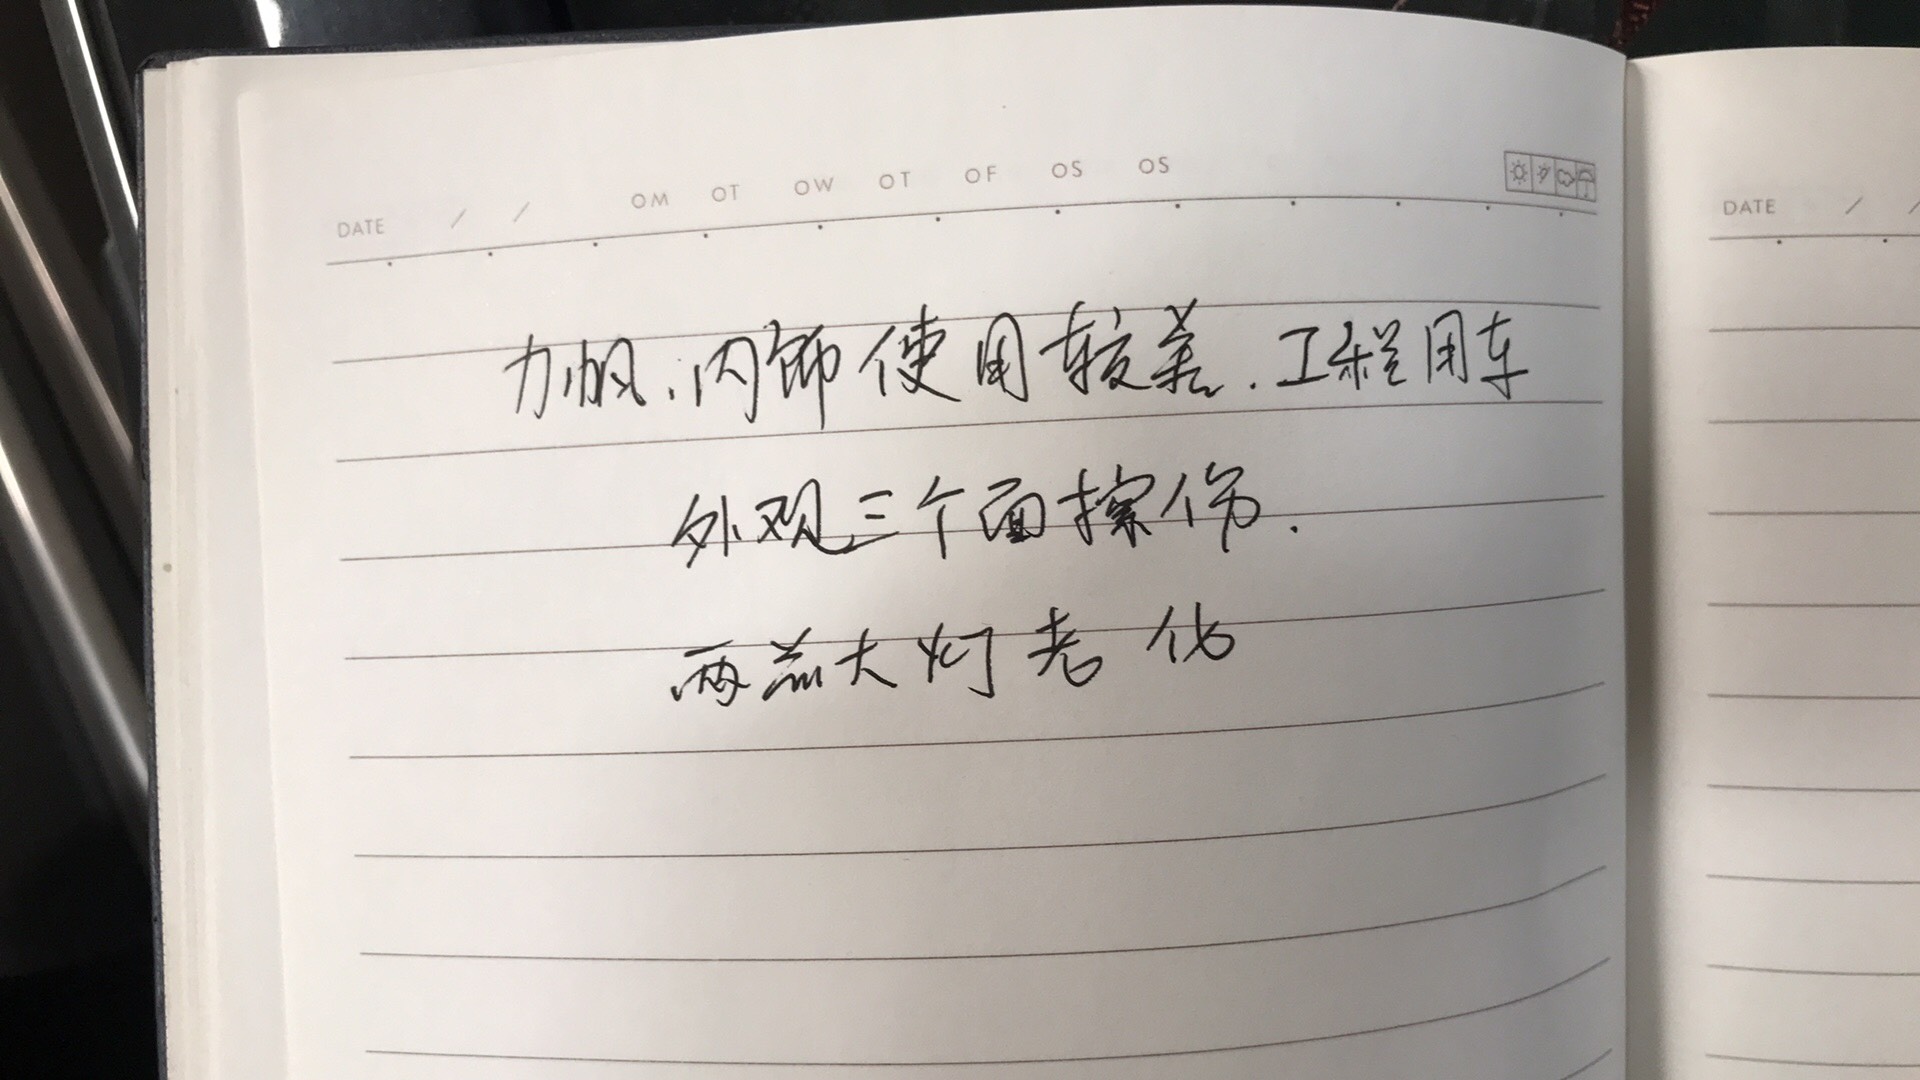 DATE / / OM OT OW OT OF OS OS
DATE / /
力帆.内饰使用较差.工程用车
外观三个面擦伤.
两盏大灯老化